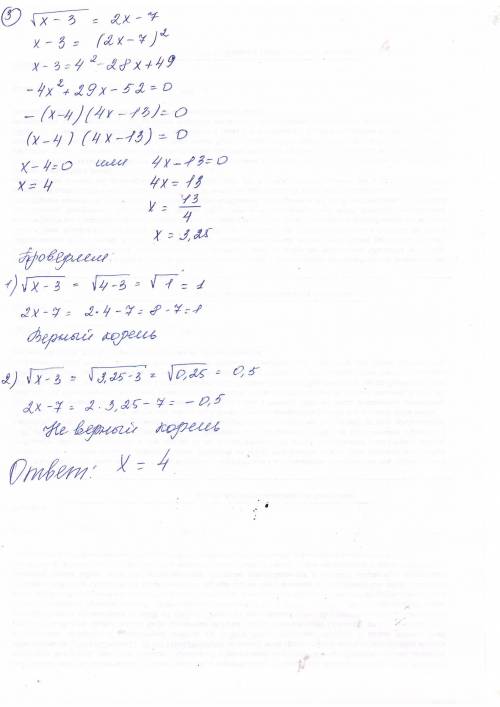 ③ √x-3 = 2x-7
x-3 = (2x-7)²
x-3=4²-28x+49
-4x²+29x-52=0
-(x-4)(4x-13)=0
(x-4)(4x-13)=0
x-4=0 или 4x-13=0
x=4 4x=13
x = 13/4
x = 3,25
Проверяем:
1) √x-3 = √4-3 = √1 = 1
2x-7 = 2·4-7=8-7=1
Верный корень
2) √x-3 = √3,25-3 = √0,25 = 0,5
2x-7 = 2·3,25-7=-0,5
Не верный корень
Ответ: x=4